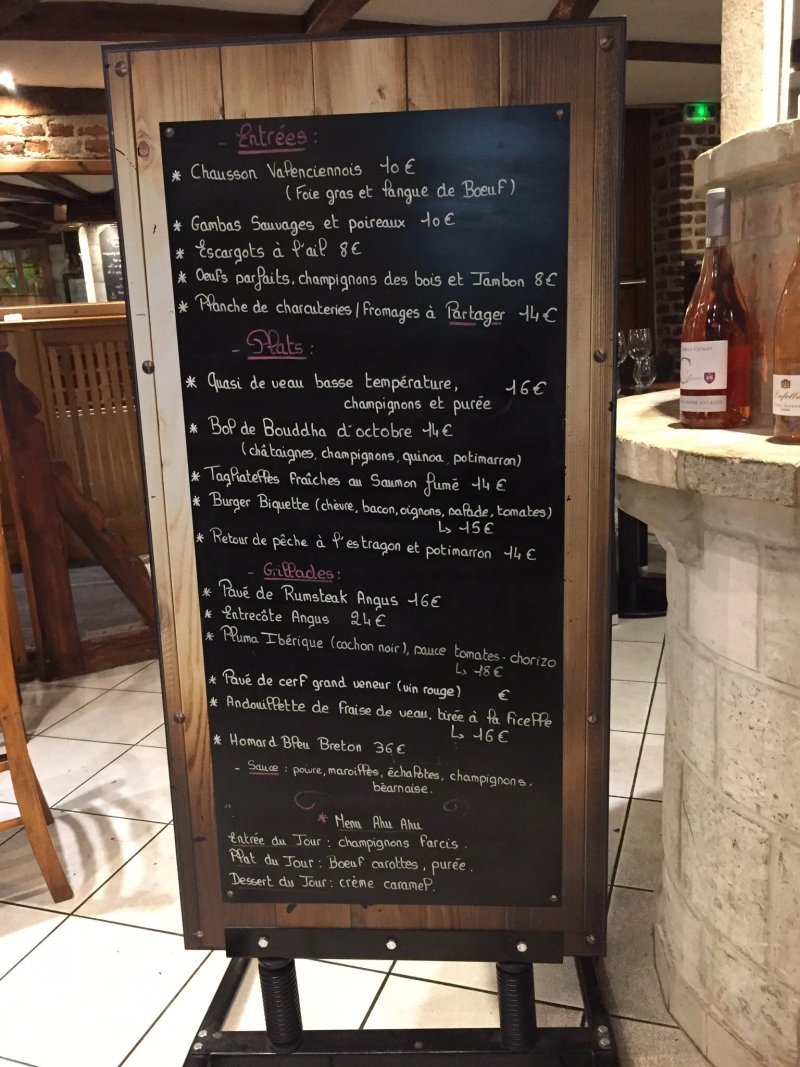 - Entrées :
* Chausson Valenciennois 10 €
(Foie gras et langue de Boeuf)
* Gambas Sauvages et poireaux 10 €
* Escargots à l'ail 8 €
* Oeufs parfaits, champignons des bois et Jambon 8 €
* Planche de charcuteries / Fromages à Partager 14 €
- Plats :
* Quasi de veau basse température, 16 €
champignons et purée
* Bol de Bouddha d'octobre 14 €
(châtaignes, champignons, quinoa, potimarron)
* Tagliatelles fraîches au Saumon fumé 14 €
* Burger Biquette (chèvre, bacon, oignons, salade, tomates)
↳ 15 €
* Retour de pêche à l'estragon et potimarron 14 €
- Grillades :
* Pavé de Rumsteak Angus 16 €
* Entrecôte Angus 24 €
* Pluma Ibérique (cochon noir), sauce tomates - chorizo
↳ 18 €
* Pavé de cerf grand veneur (vin rouge) €
* Andouillette de fraise de veau, tirée à la ficelle
↳ 16 €
* Homard Bleu Breton 36 €
- Sauce : poivre, maroilles, échalotes, champignons,
béarnaise.
* Menu Ahu Ahu
Entrée du Jour : champignons farcis.
Plat du Jour : Boeuf carottes, purée.
Dessert du Jour : crème caramel.